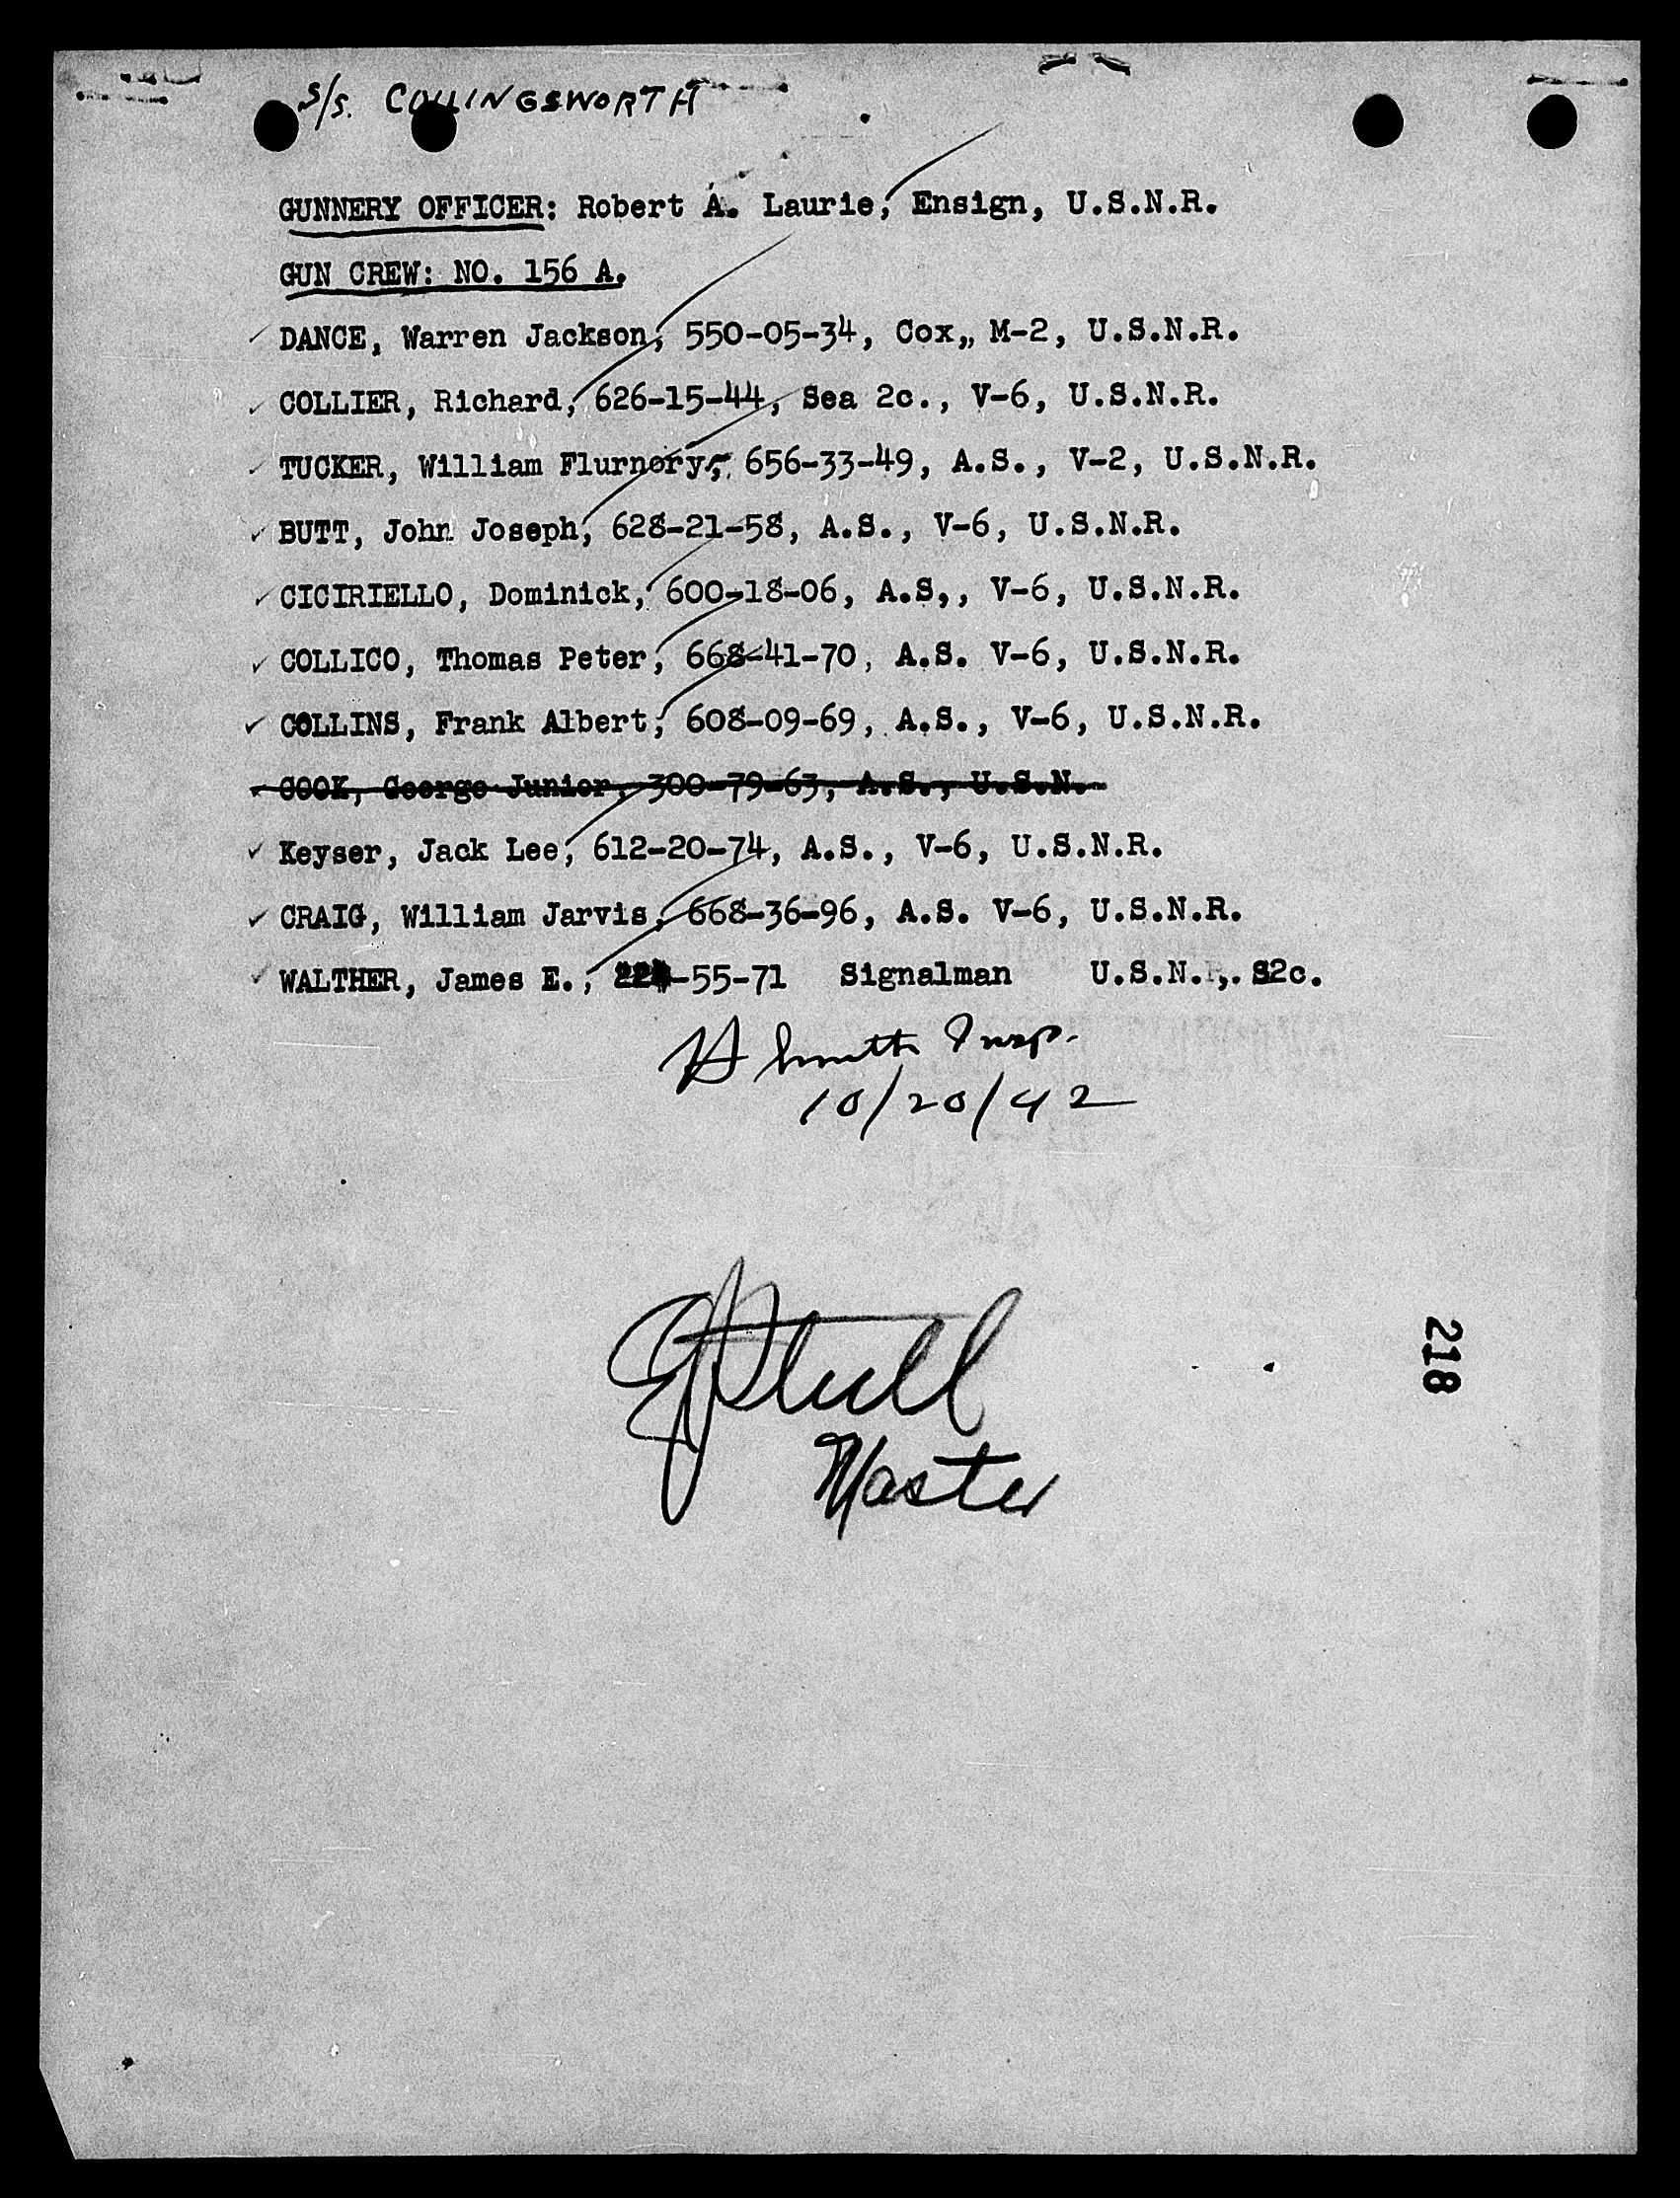 S/S. COLLINGSWORTH
GUNNERY OFFICER: Robert A. Laurie, Ensign, U.S.N.R.
GUN CREW: NO. 156 A.
DANCE, Warren Jackson, 550-05-34, Cox,, M-2, U.S.N.R.
COLLIER, Richard, 626-15-44, Sea 2c., V-6, U.S.N.R.
TUCKER, William Flurnory, 656-33-49, A.S., V-2, U.S.N.R.
BUTT, John Joseph, 628-21-58, A.S., V-6, U.S.N.R.
CICIRIELLO, Dominick, 600-18-06, A.S,, V-6, U.S.N.R.
COLLICO, Thomas Peter, 668-41-70, A.S. V-6, U.S.N.R.
COLLINS, Frank Albert, 608-09-69, A.S., V-6, U.S.N.R.
COOK, George Junior, 300-79-63, A.S., U.S.N.
Keyser, Jack Lee, 612-20-74, A.S., V-6, U.S.N.R.
CRAIG, William Jarvis, 668-36-96, A.S. V-6, U.S.N.R.
WALTHER, James E., -55-71 Signalman U.S.N.,. S2c.
H Smith Insp.
10/20/42
218
Master